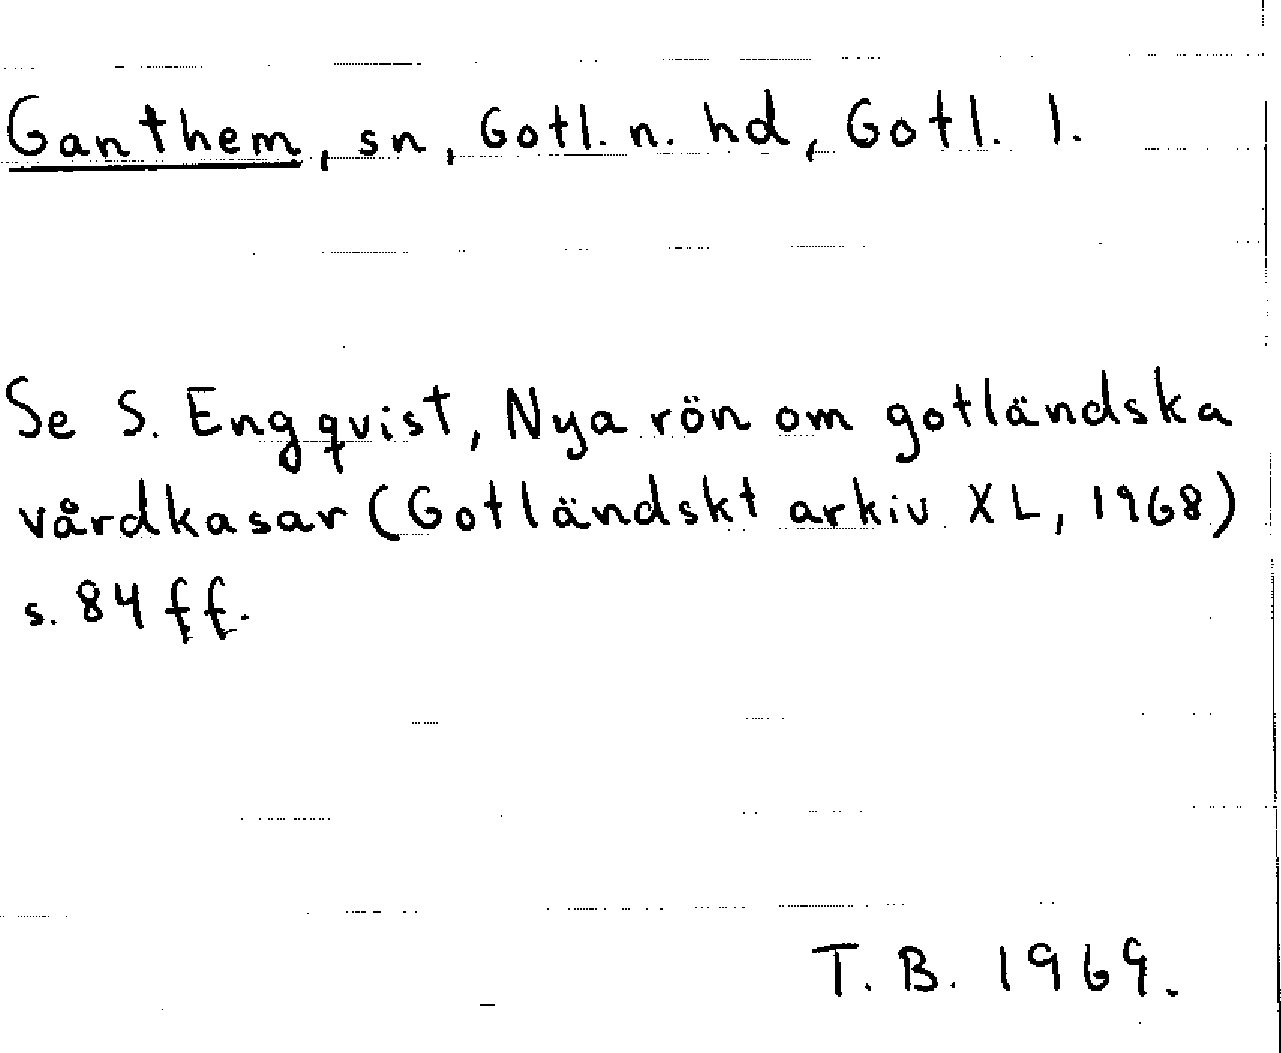 Ganthem, sn, Gotl. n. hd, Gotl. l.
Se S. Engqvist, Nya rön om gotländska
vårdkasar (Gotländskt arkiv XL, 1968)
s. 84 ff.
T. B. 1969.